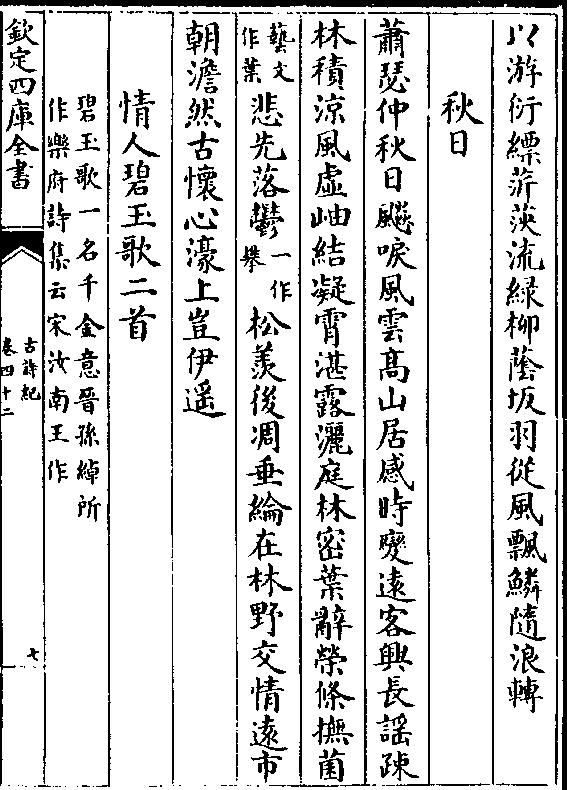 以游衍縹萍莢流緑柳䕃坂羽從風飄鱗隨浪轉
秋日
蕭瑟仲秋日飈唳風雲髙山居感時變逺客興長謡疎
林積涼風虚岫結凝霄湛露灑庭林宻葉辭榮條撫菌
藝文作葉悲先落鬱一作攀松羨後凋垂綸在林野交情逺市
朝澹然古懷心濠上豈伊遥
情人碧玉歌二首
碧玉歌一名千金意晉孫綽所
作樂府詩集云宋汝南王作
欽定四庫全書
古詩紀
卷四十二
七